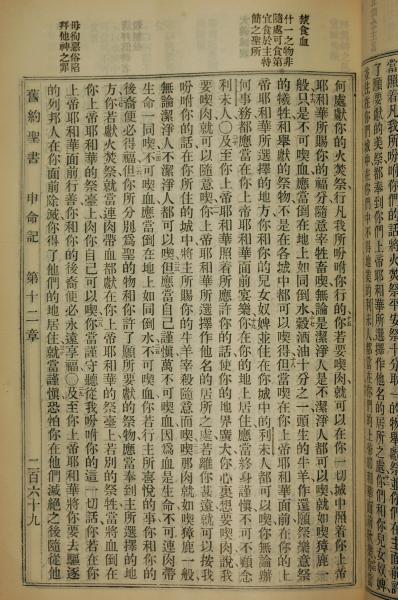 當照着凡我所吩咐你們的話將火焚祭平安祭十分取一的物
了願要獻的美祭都奉到你們上帝耶和華所選擇作他名的居所之處你們和兒女奴婢
禁食血
什一之物非
隨處可食第
宜食於主特
簡之聖所
何處獻你的火焚祭行凡我所吩咐你行的○你若要喫肉就可以在你一切城中照着你上帝
耶和華所賜你的福分隨意宰牲畜喫無論是潔淨人是不潔淨人都可以喫就如喫獐鹿一
般只是不可喫血應當倒在地上如同倒水穀酒油十分之一頭生的牛羊作還願祭樂意祭
的犧牲和舉獻的祭物不是在各城中都可以喫得但當喫在你上帝耶和華面前在你的上
帝耶和華所選擇的地方你和你的兒女奴婢並住在你城中的利未人都可以喫你無論辦
何事務都應當在你上帝耶和華面前宴樂你在你的地上居住應當終身謹慎不可不顧念
利未人○及至你上帝耶和華照着所應許你的話使你的地界廣大你心裏想要喫肉說我
要喫肉就可以隨意喫你上帝耶和華所選擇作他名的居所之處若離你甚遠就可以按我
吩咐你的話在你所住的城中將主所賜你的牛羊宰殺隨意而喫喫那肉就如喫獐鹿一般
無論潔淨人不潔淨人都可以喫但應當自己謹慎萬不可喫血因爲血是生命不可連肉帶
生命一同喫不可喫血應當倒在地上如同倒水不可喫血你若行主所喜悅的事你和你的
後裔便必得福但你所分別爲聖的物和你許了願所要獻的祭物應當奉到主所選擇的地
方你若獻火焚祭就當連肉帶血都獻在你上帝耶和華的祭臺上若別的祭牲當將血倒在
你上帝耶和華的祭臺上肉你自己可以喫你當謹守聽從我吩咐你的這一切話你若在你
上帝耶和華面前行善你和你的後裔便必永遠享福○及至你上帝耶和華將你要去驅逐
的列邦人在你面前除滅你得了他們的地居住就當謹慎恐怕你在他們滅絕之後隨從他
毋徇惡俗陷
拜他神之罪
舊約聖書 申命記 第十二章 二百六十九